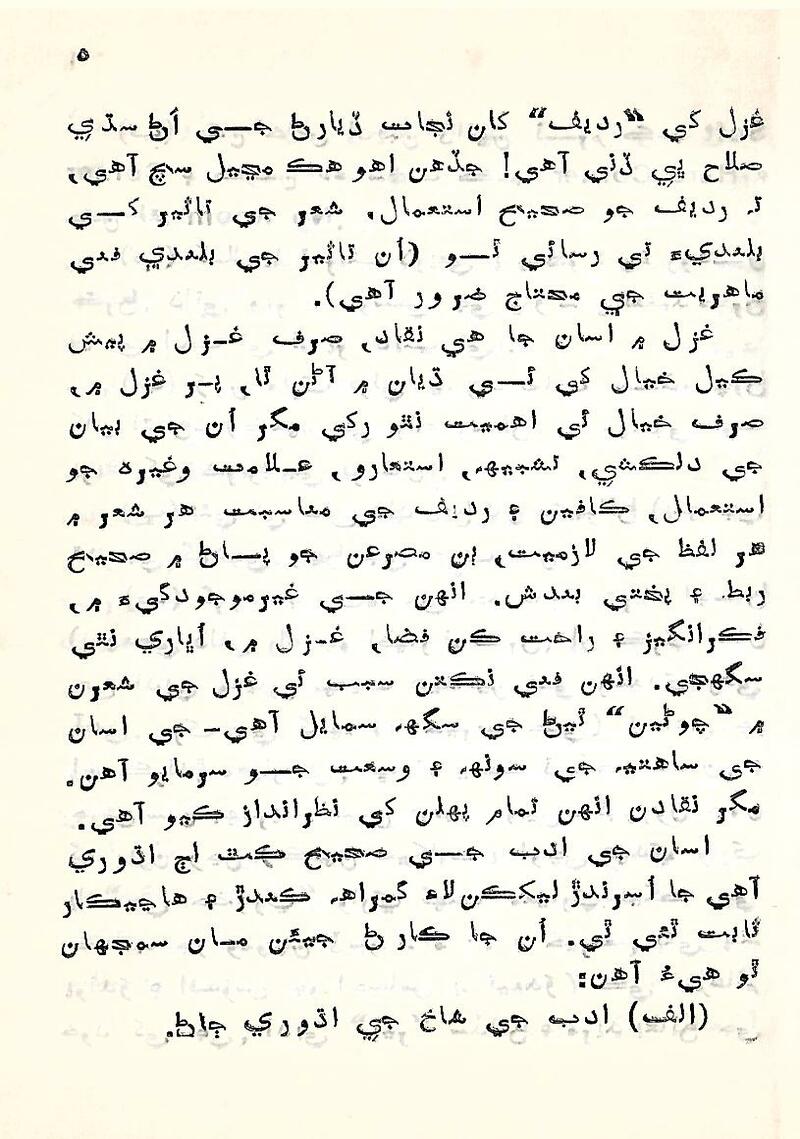 ۵
غزل کي “رديف” کان نجات ڏيارڻ جـــي اڻ سڌي
صلاح پي ڏني آهي! جڏهن اهو هڪ مڃيل سچ آهي،
تہ رديف جو صحيح استعمال، شعر جي تاثير کـــي
بلنديءَ تي رسائي ٿـــو (اُن تاثير جي بلندي فني
ماهريت جي محتاج ضرور آهي).
غزل ۾ اسان جا هي نقاد، صرف غـزل ۾ پيش
ڪيل خيال کي ئـــي ڌيان ۾ آڻن ٿا، پـر غزل ۾،
صرف خيال ئي اهميت نٿو رکي مگر اُن جي بيان
جي دلڪشي، تشبيهہ، استعارو، عـلامت وغيره جو
استعمال، ڪافين ۽ رديف جي مناسبت هر شعر ۾
هر لفظ جي لازميت، ٻن مصرعن جو پـــاڻ ۾ صحيح
ربط ۽ پختي بندش. انهن جـــي غيرموجودگيءَ ۾،
فڪرانگيز ۽ راحت ڪن فضا، غـزل ۾، اُڀاري نٿي
سگهجي. انهن فني نڪتن سبب ئي غزل جي شعرن
۾ “چوڻين” ٿيڻ جي سگهہ سمايل آهي۔ جي اسان
جي ساهتيہ جي سونهہ ۽ وسعت جـــو سرمايو آهن.
مگر نقادن انهن تمام پهلن کي نظرانداز ڪيو آهي.
اسان جي ادب جـــي صحيح ڪٿ اڄ اڌوري
آهي جا اُسرندڙ ليکڪن لاءِ گمراهہ ڪندڙ ۽ هاڃيڪار
ثابت ٿئي ٿي. اُن جا ڪارڻ جيئن مـان سمجهان
ٿو هيءُ آهن:
(الف) ادب جي شاخ جي اڌوري ڄاڻ.